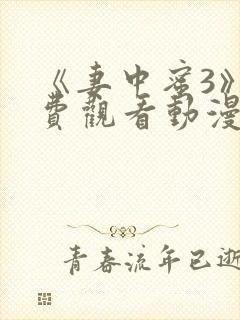 《妻中蜜3》
費觀看動漫
青春流年已逝